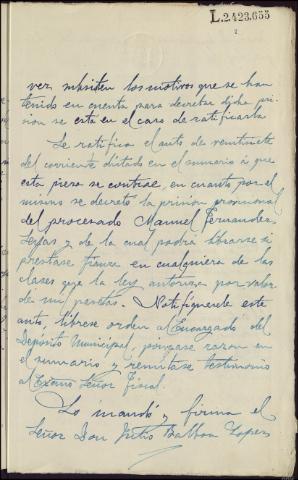 L.2.423.655
2
ver subsisten los motivos que se han
tenido en cuenta para decretar dicha pri-
sion se está en el caso de ratificarla
Se ratifica el auto de veintisiete
del corriente dictado en el sumario á que
esta pieza se contrae, en cuanto por el
mismo se decretó la prisión provisional
del procesado Manuel Fernandez
y de la cual podrá librarse si
prestase fianza en cualquiera de las
clases que la ley autoriza por valor
de mil pesetas. Notifíquese este
auto, líbrese orden al Encargado del
Depósito Municipal, póngase razon en
el sumario y remítase testimonio
al Excmo Señor Fiscal.
Lo mandó y firma el
Señor Don Julio Balboa Lopez